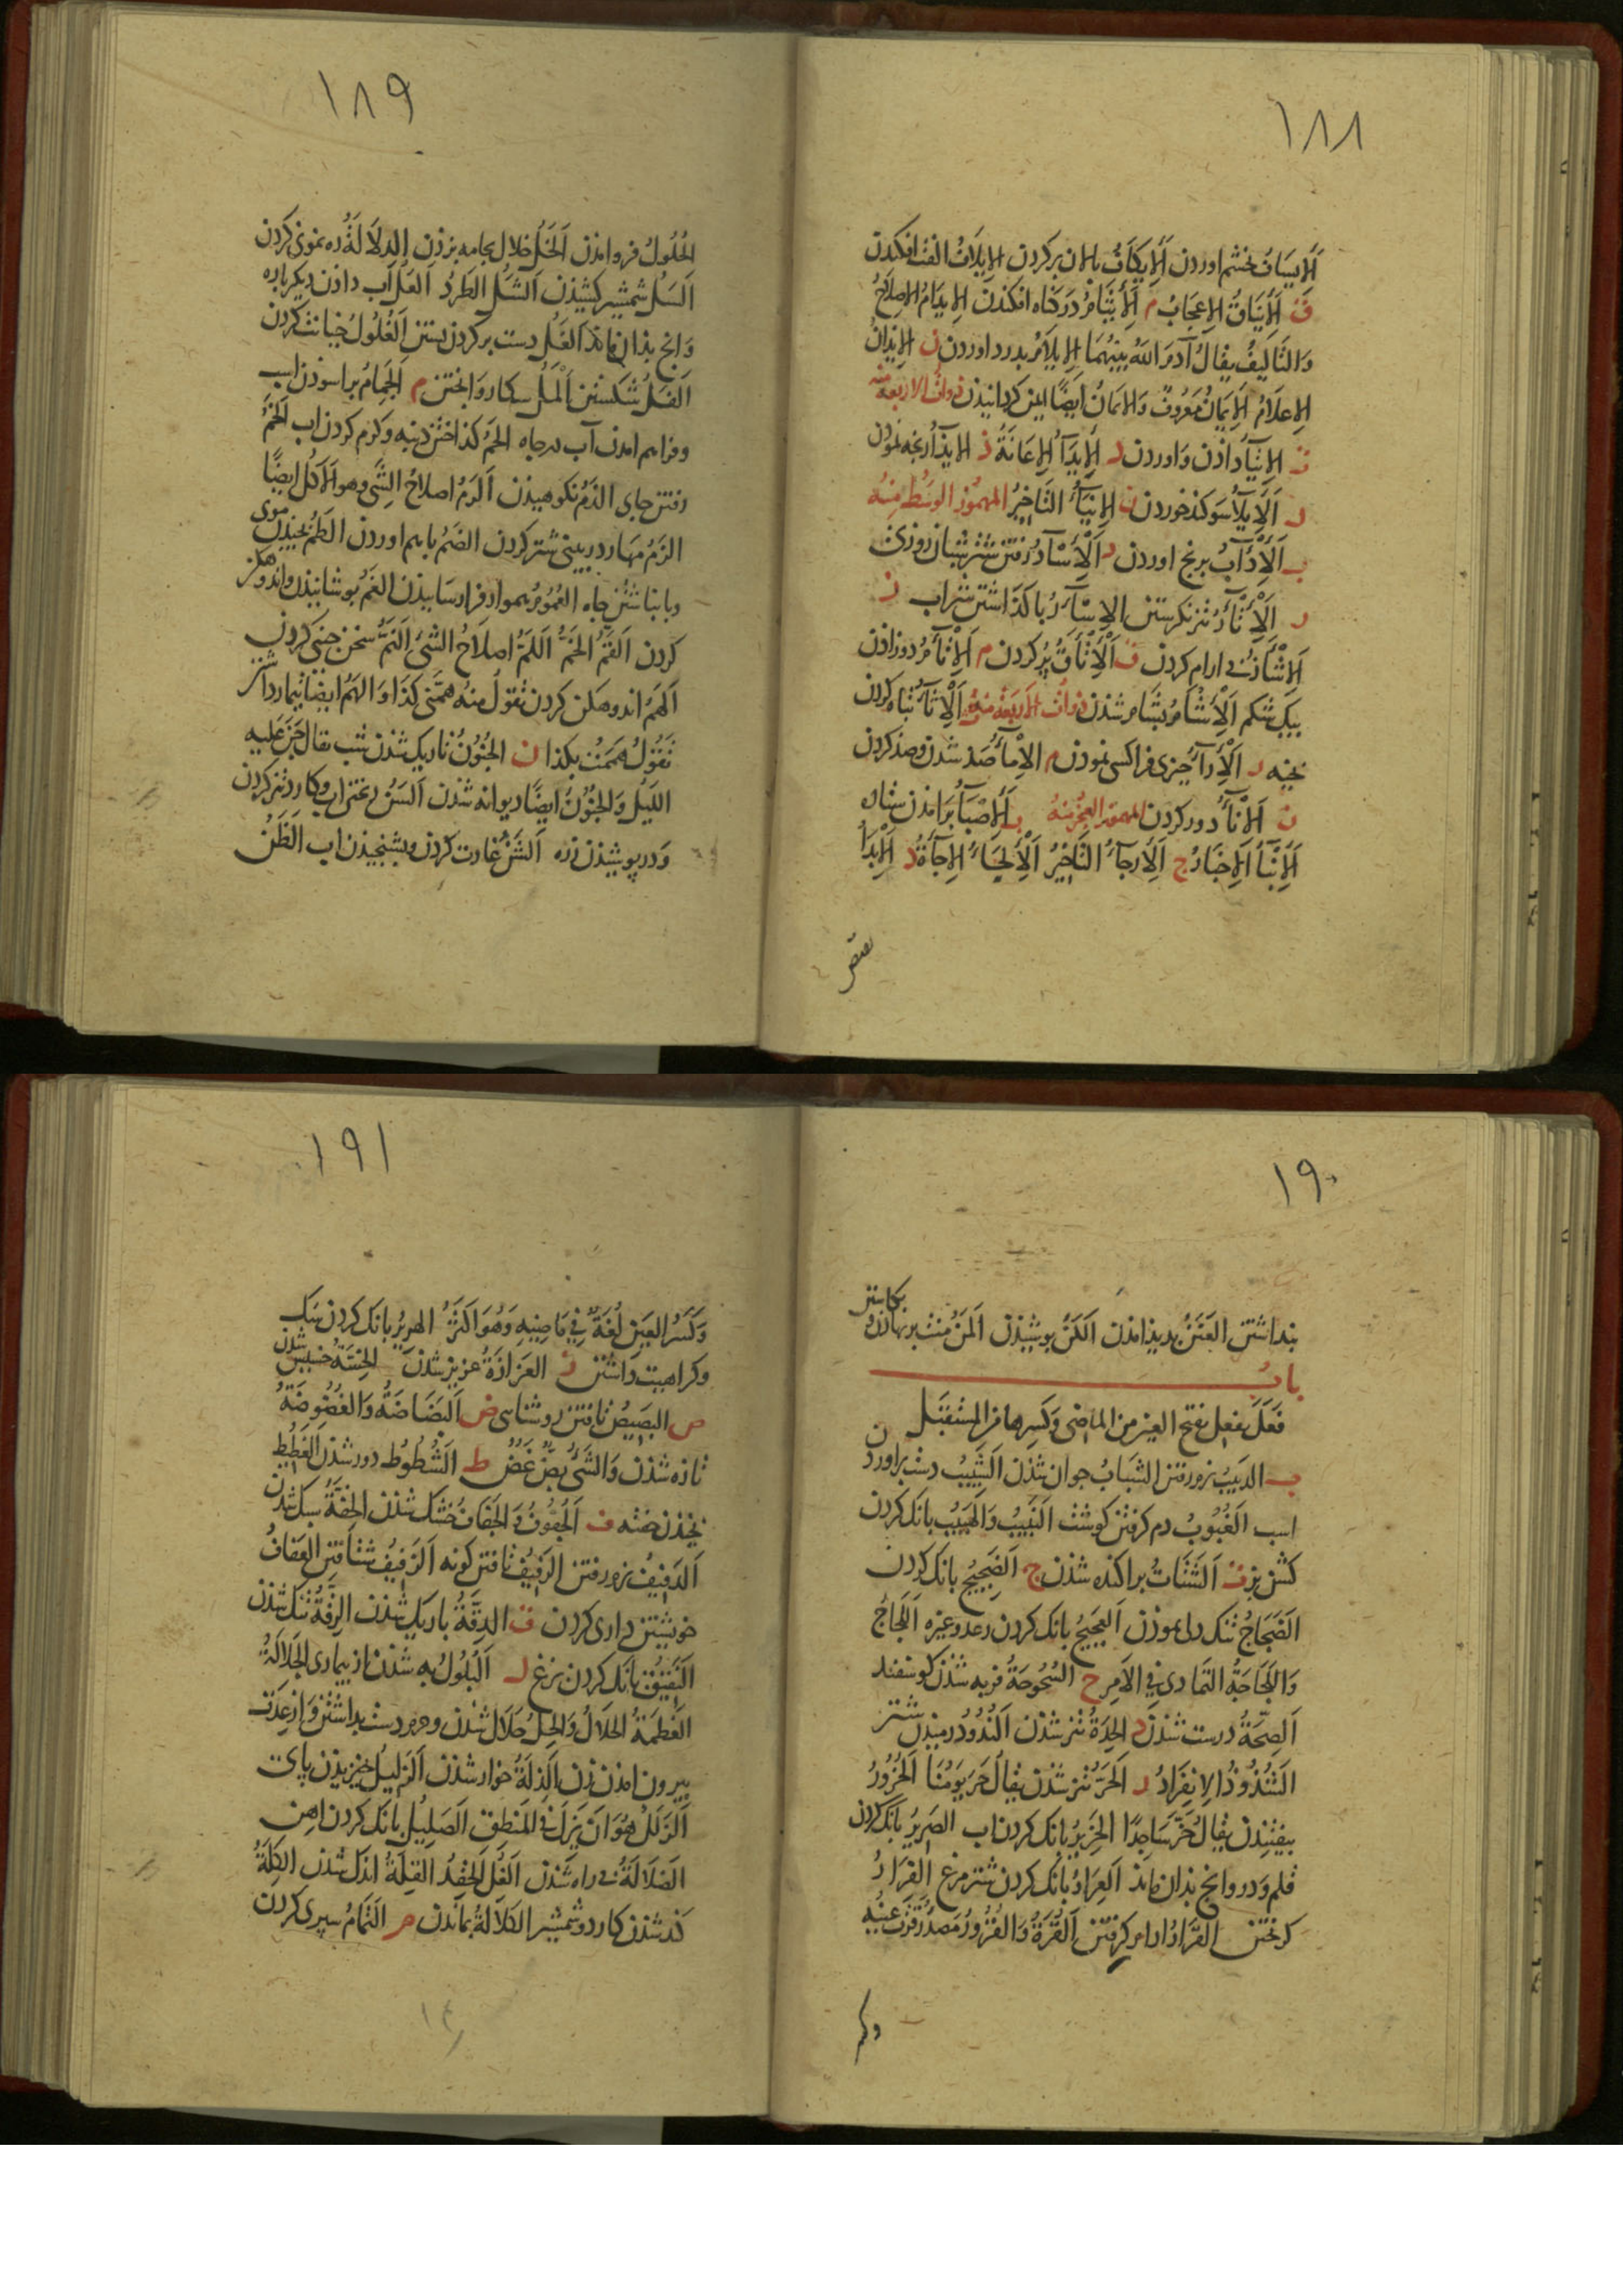 ١٨٨
الایساف بخشم اوردن الایکاف پالان برکردن الایلاف الفت افکندن
ق الایناق الاعجاب م الایثام در کناه افکندن الایدام الاصلاح
والتالیف یقال آدم الله بینهما الایلام بدرد اوردن ن الایذان
الاعلام الایمان معروف والایمان ایضا ایمن کردانیذن ذوات الاربعة منه
ت الایتاء داذن و اوردن د الایداء الاعانة ذ الایذاء رنجه نموذن
ل الایلاء سوکند خوردن ن الایناء التاخیر المهموز الوسط منه
ب الادآب برنج اوردن د الاسآد رفتن شتر شبان روزی
ر الاتآر تیز نکرستن الاسآر باکذاشتن شراب ن
ارام کردن ق الاتآق پر کردن م الاتآم دو زاذن
بیک شکم الاشآم بشام شذن ذوات الاربعة منه الاثآء تباه کردن
بخیه ر الارآء چیزی فرا کسی نموذن م الامآء صذ شذن و صذ کردن
ن الانآء دور کردن المهموز العجز منه ب الاصباء برامذن ستاره
الانباء الاخبار ج الارجاء التاخیر الالجاء الاجآءة د الابداء
١٨٩
الحلول فروامذن الخل خلال بجامه بر زدن الدلالة ره نمونی کردن
السل شمشیر کشیذن الشل الطرد العل آب داذن دیکرباره
وانج بذان ماند الغل دست بر کردن بستن الغلول خیانت کردن
الفل شکستن المل م الجمام براسوذن اسب
وفراهم امدن آب در چاه الحم کذاختن دنبه و کرم کردن اب الخم
رفتن جای الذم نکوهیذن الرم اصلاح الشی وهو الاکل ایضا
الزم مهار در بینی شتر کردن الضم باهم اوردن الطم موی
و بانباشتن چاه الغم بوشانیذن و اندوهکن
کردن القم الخم اللم اصلاح الشی النم سخن چینی کردن
الهم اندوهکن کردن تقول منه همنی کذا و الهم ایضا تیمار داشتن
تقول هممت بکذا ن الجنون تاریک شذن شب یقال جن علیه
اللیل والجنون ایضا دیوانه شذن السن ریختن اب و کارد تیز کردن
و در پوشیذن زره الشن غارت کردن اب الظن
١٩٠
بنداشتن العنن بدید امدن الکن پوشیذن المن منت برنهاذن و
باب
فعل یفعل بفتح العین من الماضی وکسرها من المستقبل
ب الدبیب نرم رفتن الشباب جوان شذن الشبیب دست براوردن
اسب الغبوب دم کرفتن کوشت النبیب والهبیب بانک کردن
کشن بز ت الشتات پراکنده شذن ج الضجیج بانک کردن
الضجاج تنک دلی نموذن العجیج بانک کردن رعد و غیره اللجاج
واللجاجة التمادی فی الامر ح السحوحة فربه شذن کوسفند
الصحة درست شذن د الحدة تیز شذن الندود رمیذن شتر
الشذوذ الانفراد ر الحر تیز شذن یقال حر یومنا الخرور
بیفتیذن یقال خر ساجدا الخریر بانک کردن اب الصریر بانک کردن
قلم و در وانج بذان ماند العرار بانک کردن شترمرغ الفرار
کریختن القرار ارام کرفتن القرة والقرور مصدر قرت عینه
١٩١
وکسر العین لغة فی ماضیه وهو اکثر الهریر بانک کردن سک
وکراهیت داشتن ز العزازة عزیز شذن الخسة خسیس شدن
ص البصیص تافتن روشنایی ض البضاضة والغضوضة
تازه شذن والشی بض غض ط الشطوط دور شذن الغطیط
ف الجفوف والجفاف خشک شذن الخفة سبک شذن
الدفیف نرم رفتن الرفیف تافتن کونه الزفیف شتافتن العفاف
خویشتن داری کردن ق الدقة باریک شذن الرقة تنک شذن
النقیق بانک کردن بزغ ل البلول به شذن از بیماری الجلالة
العظمة الحلال والحل حلال شذن و از عدت
بیرون امدن زن الذلة خوار شذن الزلیل خیزیدن پای
الزلل هو ان یزل فی المنطق الصلیل بانک کردن اهن
الضلالة بی راه شذن الغل الحقد القلة اندک شذن الکلة
کند شذن کارد و شمشیر الکلالة بماندن م التمام سپری کردن